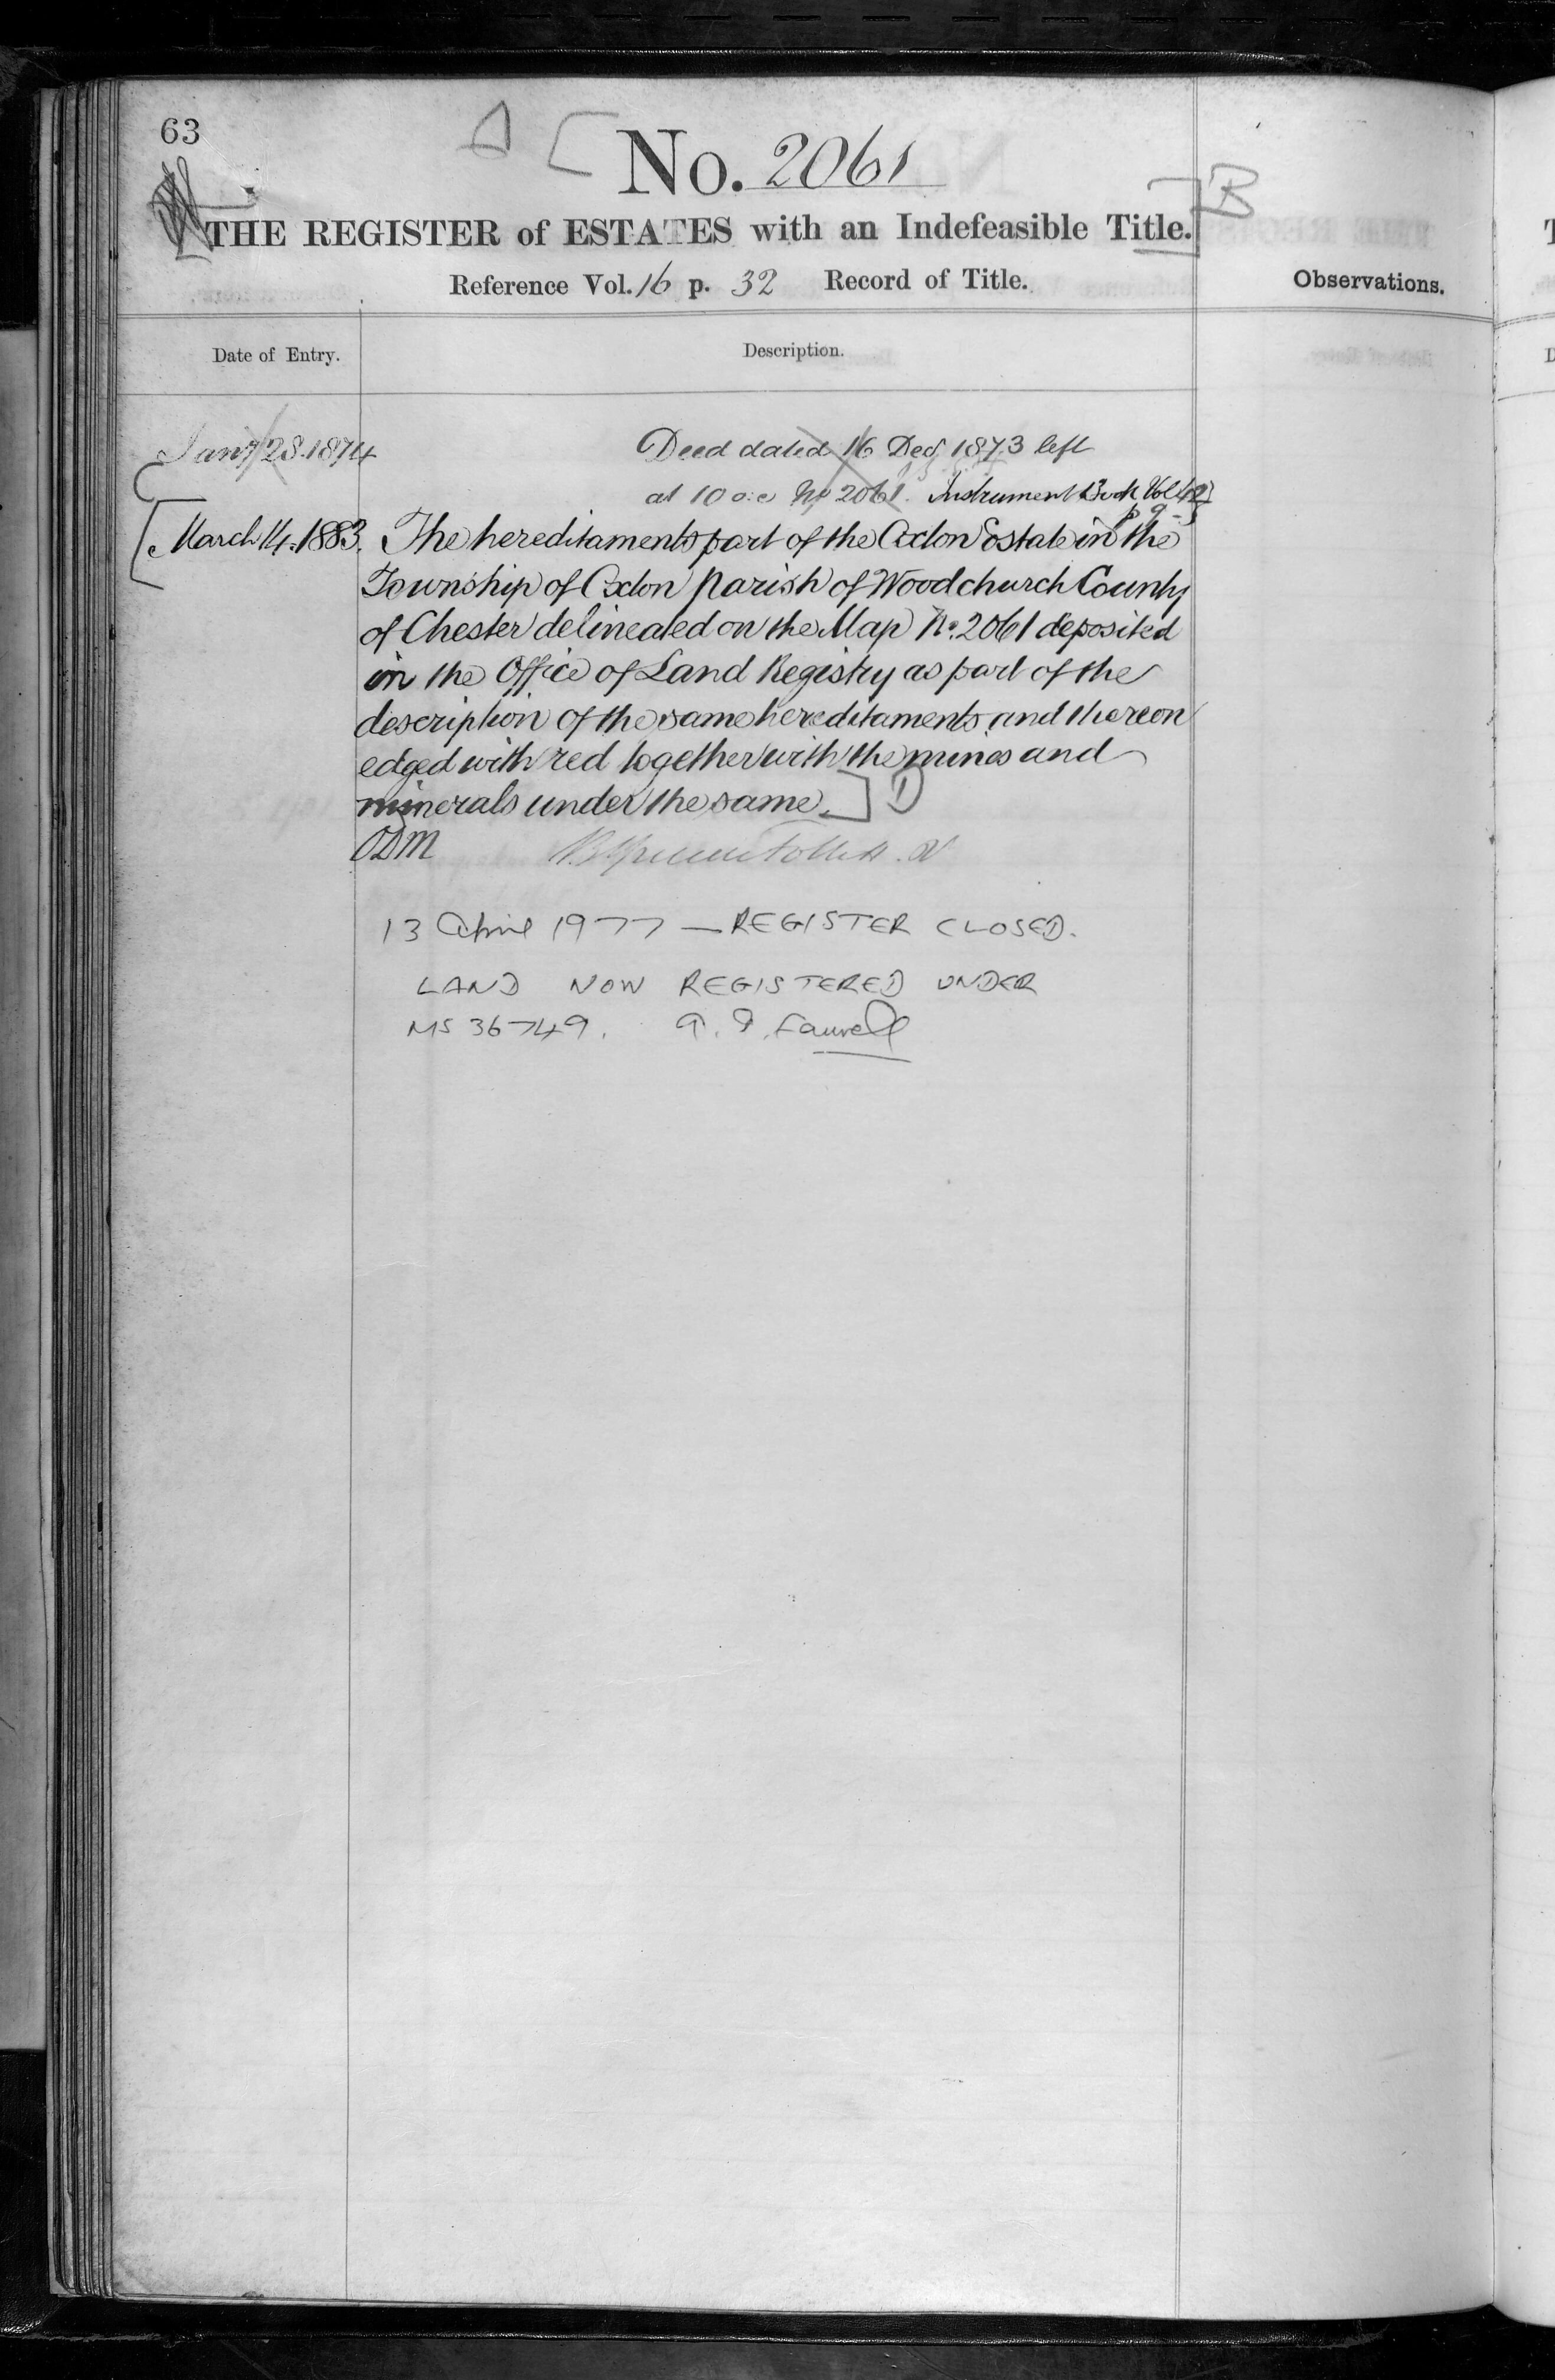 63
A
No. 2061
B
THE REGISTER of ESTATES with an Indefeasible Title.
Reference Vol. 16 p. 32 Record of Title.
Observations.
Date of Entry.
Description.
Jany 28. 1874
Deed dated 16 Decr 1873 left
at 10 o.c No 2061. Instrument Book Vol 42
p 9
March 14. 1883.
The hereditaments part of the Oxton Estate in the
Township of Oxton Parish of Woodchurch County
of Chester delineated on the Map No. 2061 deposited
in the Office of Land Registry as part of the
description of the same hereditaments and thereon
edged with red together with the mines and
minerals under the same. D
ODM
13 April 1977 — REGISTER CLOSED.
LAND NOW REGISTERED UNDER
MS 36749.